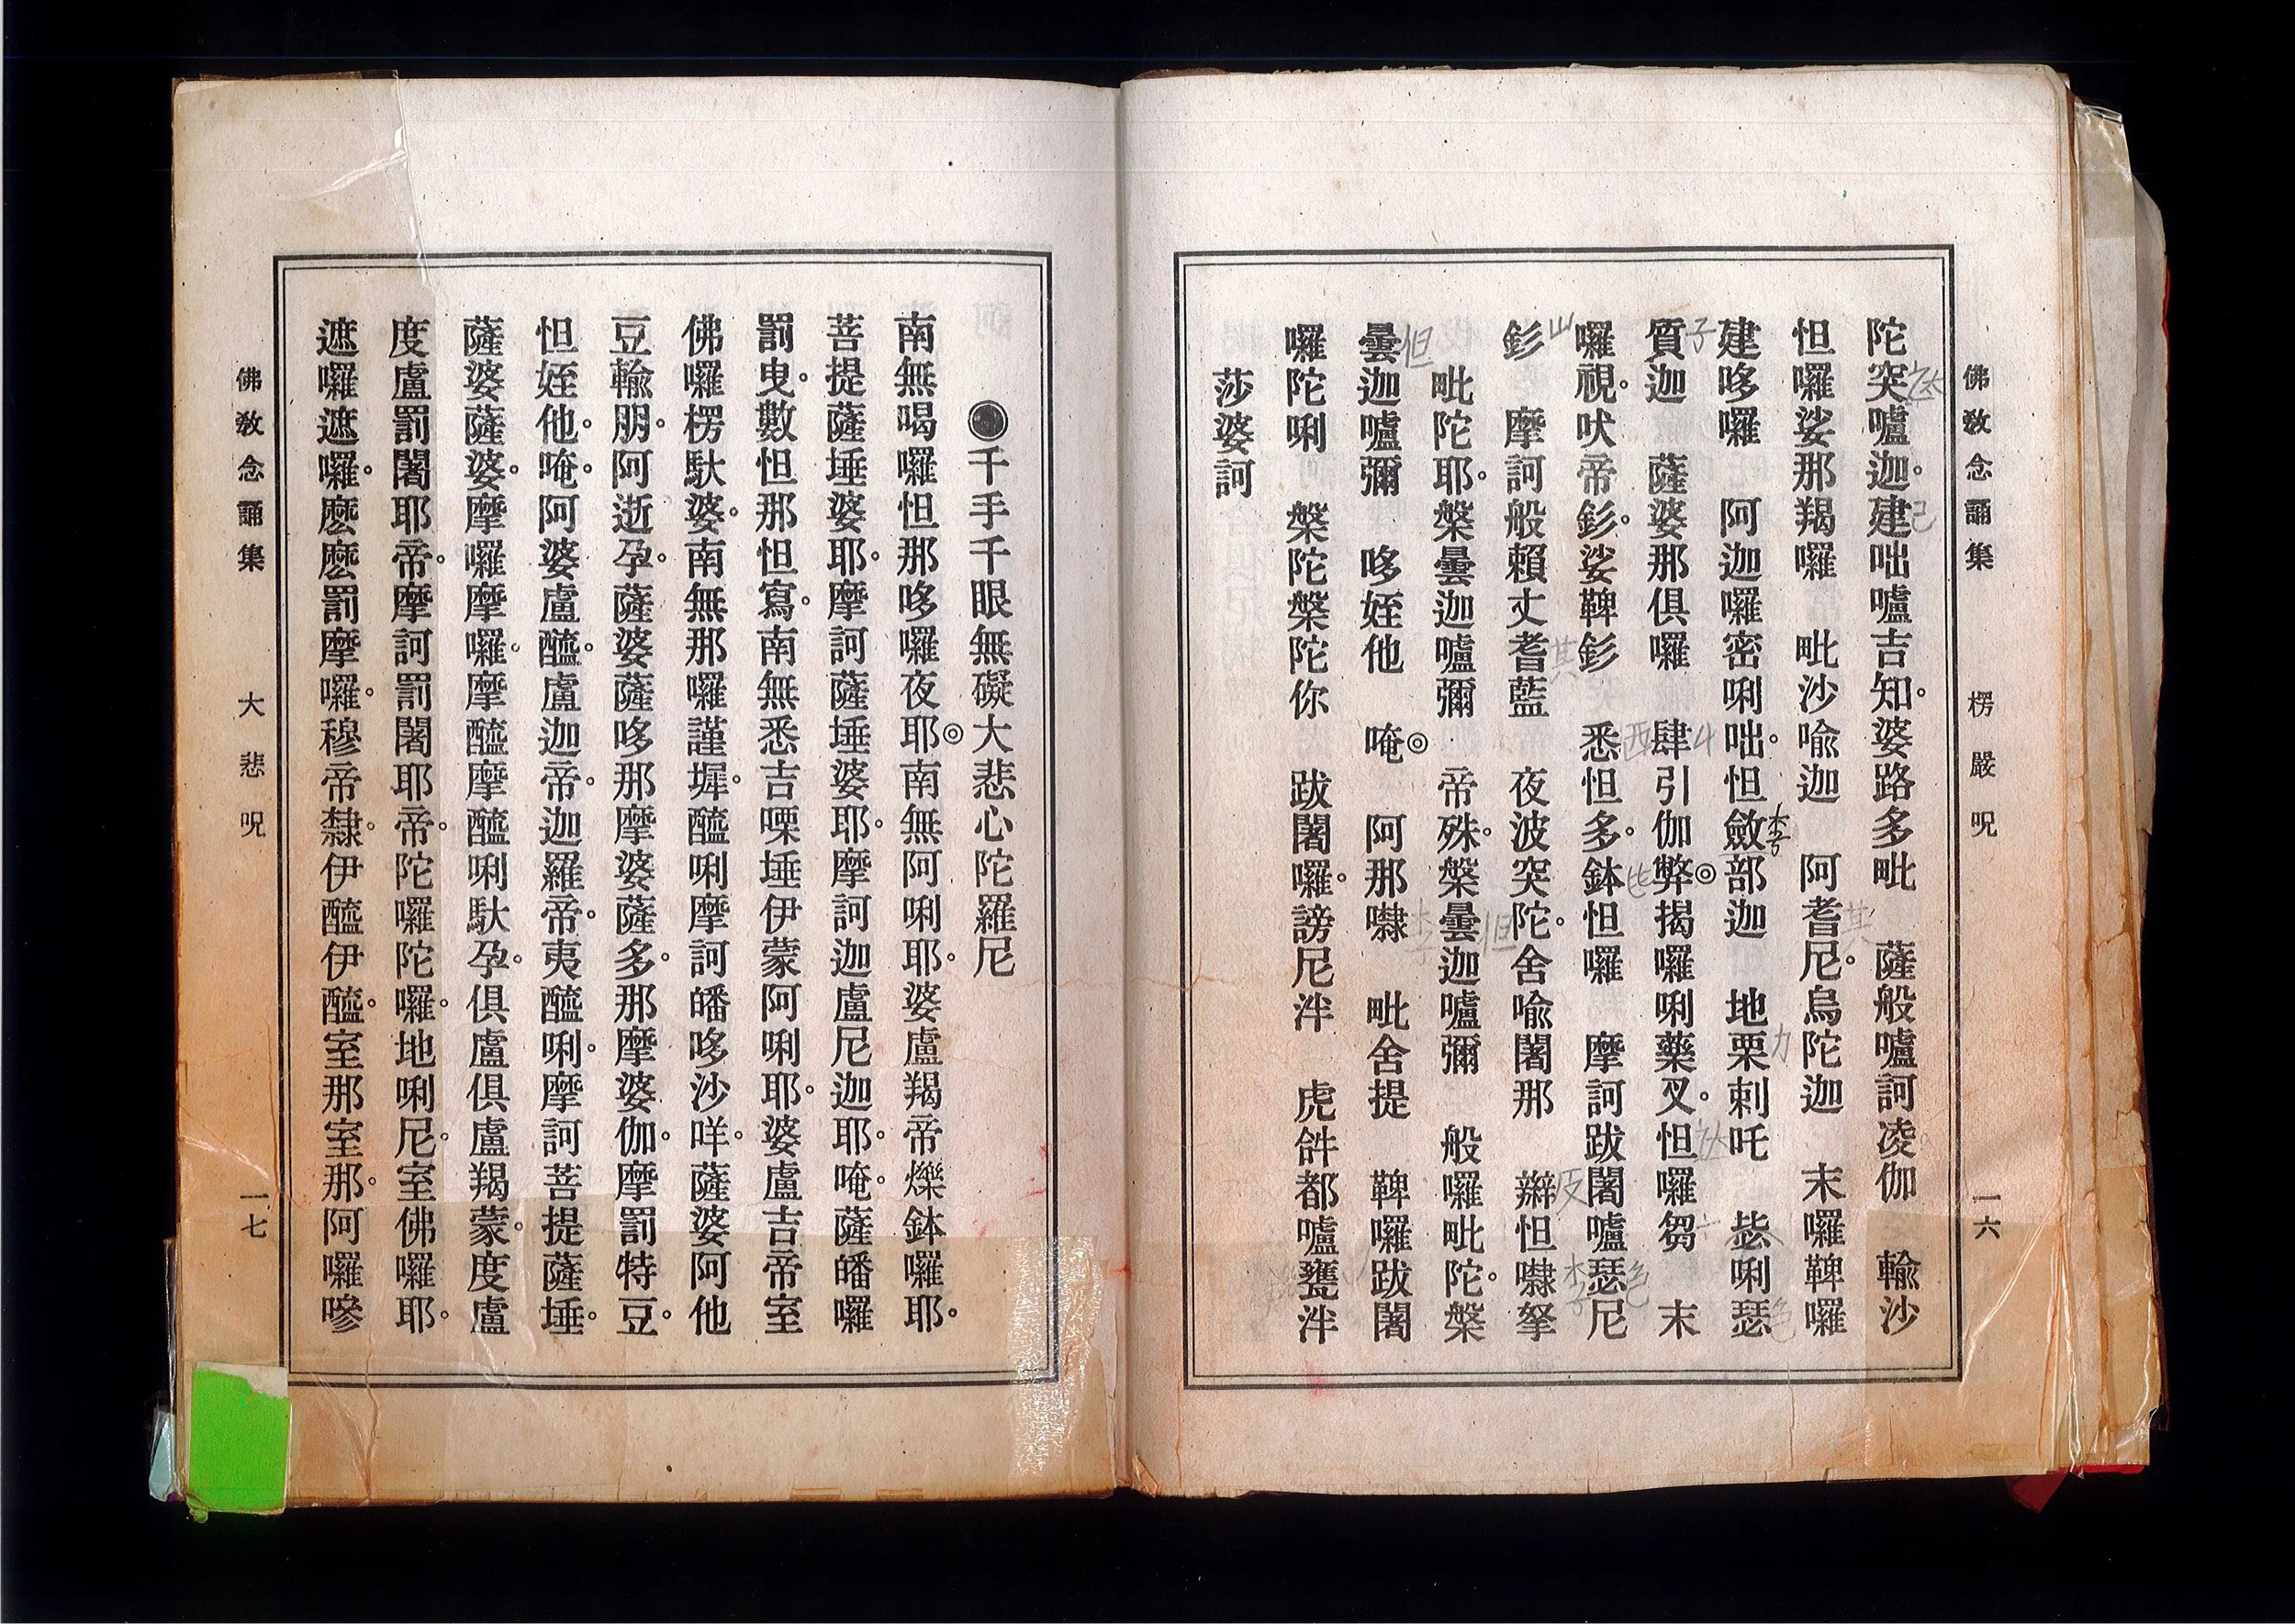 佛教念誦集　楞嚴呪　一六
陀突嚧迦。建咄嚧吉知。婆路多毗　薩般嚧訶凌伽　輸沙
怛囉娑那羯囉　毗沙喻迦　阿耆尼。烏陀迦　末囉鞞囉
建哆囉　阿迦囉密唎咄。怛斂部迦　地栗剌吒　毖唎瑟
質迦　薩婆那俱囉　肆引伽弊◎揭囉唎藥叉。怛囉芻　末
囉視。吠帝釤。娑鞞釤　悉怛多。鉢怛囉　摩訶跋闍嚧瑟尼
釤　摩訶般賴丈耆藍　夜波突陀。舍喻闍那　辮怛㘑拏
毗陀耶。槃曇迦嚧彌　帝殊。槃曇迦嚧彌　般囉毗陀。槃
曇迦嚧彌　哆姪他　唵◎　阿那㘑　毗舍提　鞞囉跋闍
囉陀唎　槃陀槃陀你　跋闍囉。謗尼泮　虎𤙖都嚧甕泮
莎婆訶
●千手千眼無礙大悲心陀羅尼
南無喝囉怛那哆囉夜耶◎南無阿唎耶。婆盧羯帝爍鉢囉耶。
菩提薩埵婆耶。摩訶薩埵婆耶。摩訶迦盧尼迦耶。唵。薩皤囉
罰曳。數怛那怛寫。南無悉吉㗚埵伊蒙阿唎耶。婆盧吉帝室
佛囉楞馱婆。南無那囉謹墀。醯唎摩訶皤哆沙咩。薩婆阿他
豆輸朋。阿逝孕。薩婆薩哆那摩婆薩多。那摩婆伽。摩罰特豆。
怛姪他。唵。阿婆盧醯。盧迦帝。迦羅帝。夷醯唎。摩訶菩提薩埵。
薩婆薩婆。摩囉摩囉。摩醯摩醯唎馱孕。俱盧俱盧羯蒙。度盧
度盧罰闍耶帝。摩訶罰闍耶帝。陀囉陀囉。地唎尼。室佛囉耶。
遮囉遮囉。麽麽罰摩囉。穆帝隸。伊醯伊醯。室那室那。阿囉嘇
佛教念誦集　大悲呪　一七